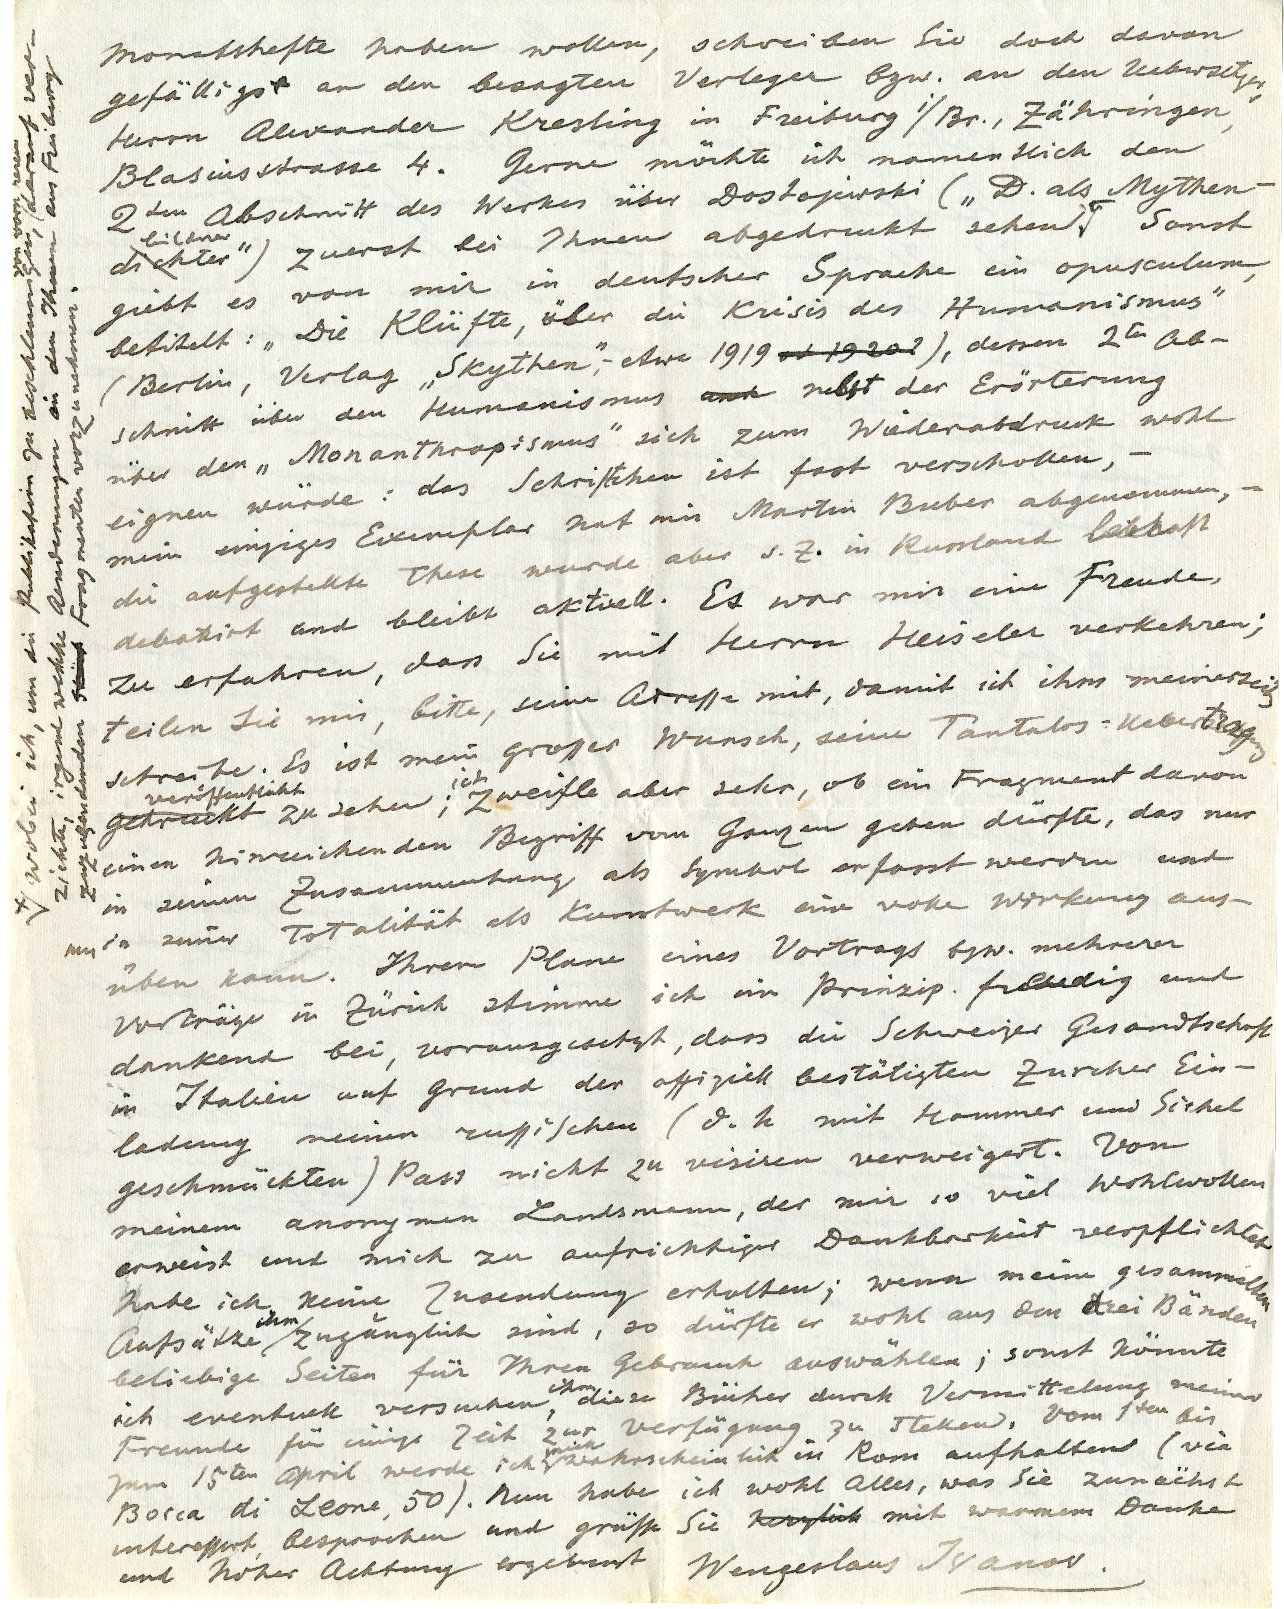 Monatshefte haben wollen, schreiben Sie doch davon
gefälligst an den besagten Verleger bzw. an den Uebersetzer,
Herrn Alexander Kresling in Freiburg i/Br., Zähringen,
Blasiusstrasse 4. Gerne möchte ich namentlich den
2ten Abschnitt des Werkes über Dostojewski („D. als Mythen-
dichter bildner“) zuerst bei Ihnen abgedruckt sehen. Sonst
giebt es von mir in deutscher Sprache ein opusculum,
betitelt: „Die Klüfte, über die Krisis des Humanismus“
(Berlin, Verlag „Skythen“, - etwa 1919 od 1920?), dessen 2ter Ab-
schnitt über den Humanismus und nebst der Erörterung
über den „Monanthropismus“ sich zum Wiederabdruck wohl
eignen würde: das Schriftchen ist fast verschollen, -
mein einziges Exemplar hat mir Martin Buber abgenommen, -
die aufgestellte These wurde aber s. Z. in Russland lebhaft
debattirt und bleibt aktuell. Es war mir eine Freude,
zu erfahren, dass Sie mit Herrn Heiseler verkehren;
teilen Sie mir, bitte, seine Adresse mit, damit ich ihm meinerseits
schreibe. Es ist mein grosser Wunsch, seine Tantalos-Uebertragung
gedruckt veröffentlicht zu sehen; ich zweifle aber sehr, ob ein Fragment davon
einen hinreichenden Begriff vom Ganzen geben dürfte, das nur
in seinem Zusammenhang als Symbol erfasst werden und
nur in seiner Totalität als Kunstwerk eine volle Wirkung aus-
üben kann. Ihrem Plane eines Vortrags bzw. mehrerer
Vorträge in Zürich stimme ich im Prinzip freudig und
dankend bei, vorausgesetzt, dass die Schweizer Gesandtschaft
in Italien auf Grund der offiziell bestätigten Zürcher Ein-
ladung meinen russischen (d. h mit Hammer und Sichel
geschmückten) Pass nicht zu visiren verweigert. Von
meinem anonymen Landsmann, der mir so viel Wohlwollen
erweist und mich zu aufrichtiger Dankbarkeit verpflichtet
habe ich keine Zusendung erhalten; wenn meine gesammelten
Aufsätze ihm zugänglich sind, so dürfte er wohl aus den drei Bänden
beliebige Seiten für Ihren Gebrauch auswählen; sonst könnte
ich eventuell versuchen, ihm diese Bücher durch Vermittelung meiner
Freunde für einige Zeit zur Verfügung zu stellen. Vom 1ten bis
zum 15ten April werde ich mich wahrscheinlich in Rom aufhalten (via
Bocca di Leone, 50). Nun habe ich wohl Alles, was Sie zunächst
interessirt, besprochen und grüsse Sie herzlich mit warmem Danke
und hoher Achtung ergebenst Wenzeslaus Ivanov.
wobei ich, um die Publikation zu beschleunigen, (darauf ver-
zichte, irgend welche Aenderungen in den Ihnen aus Freiburg
zuzusendenden Fragmenten vorzunehmen.